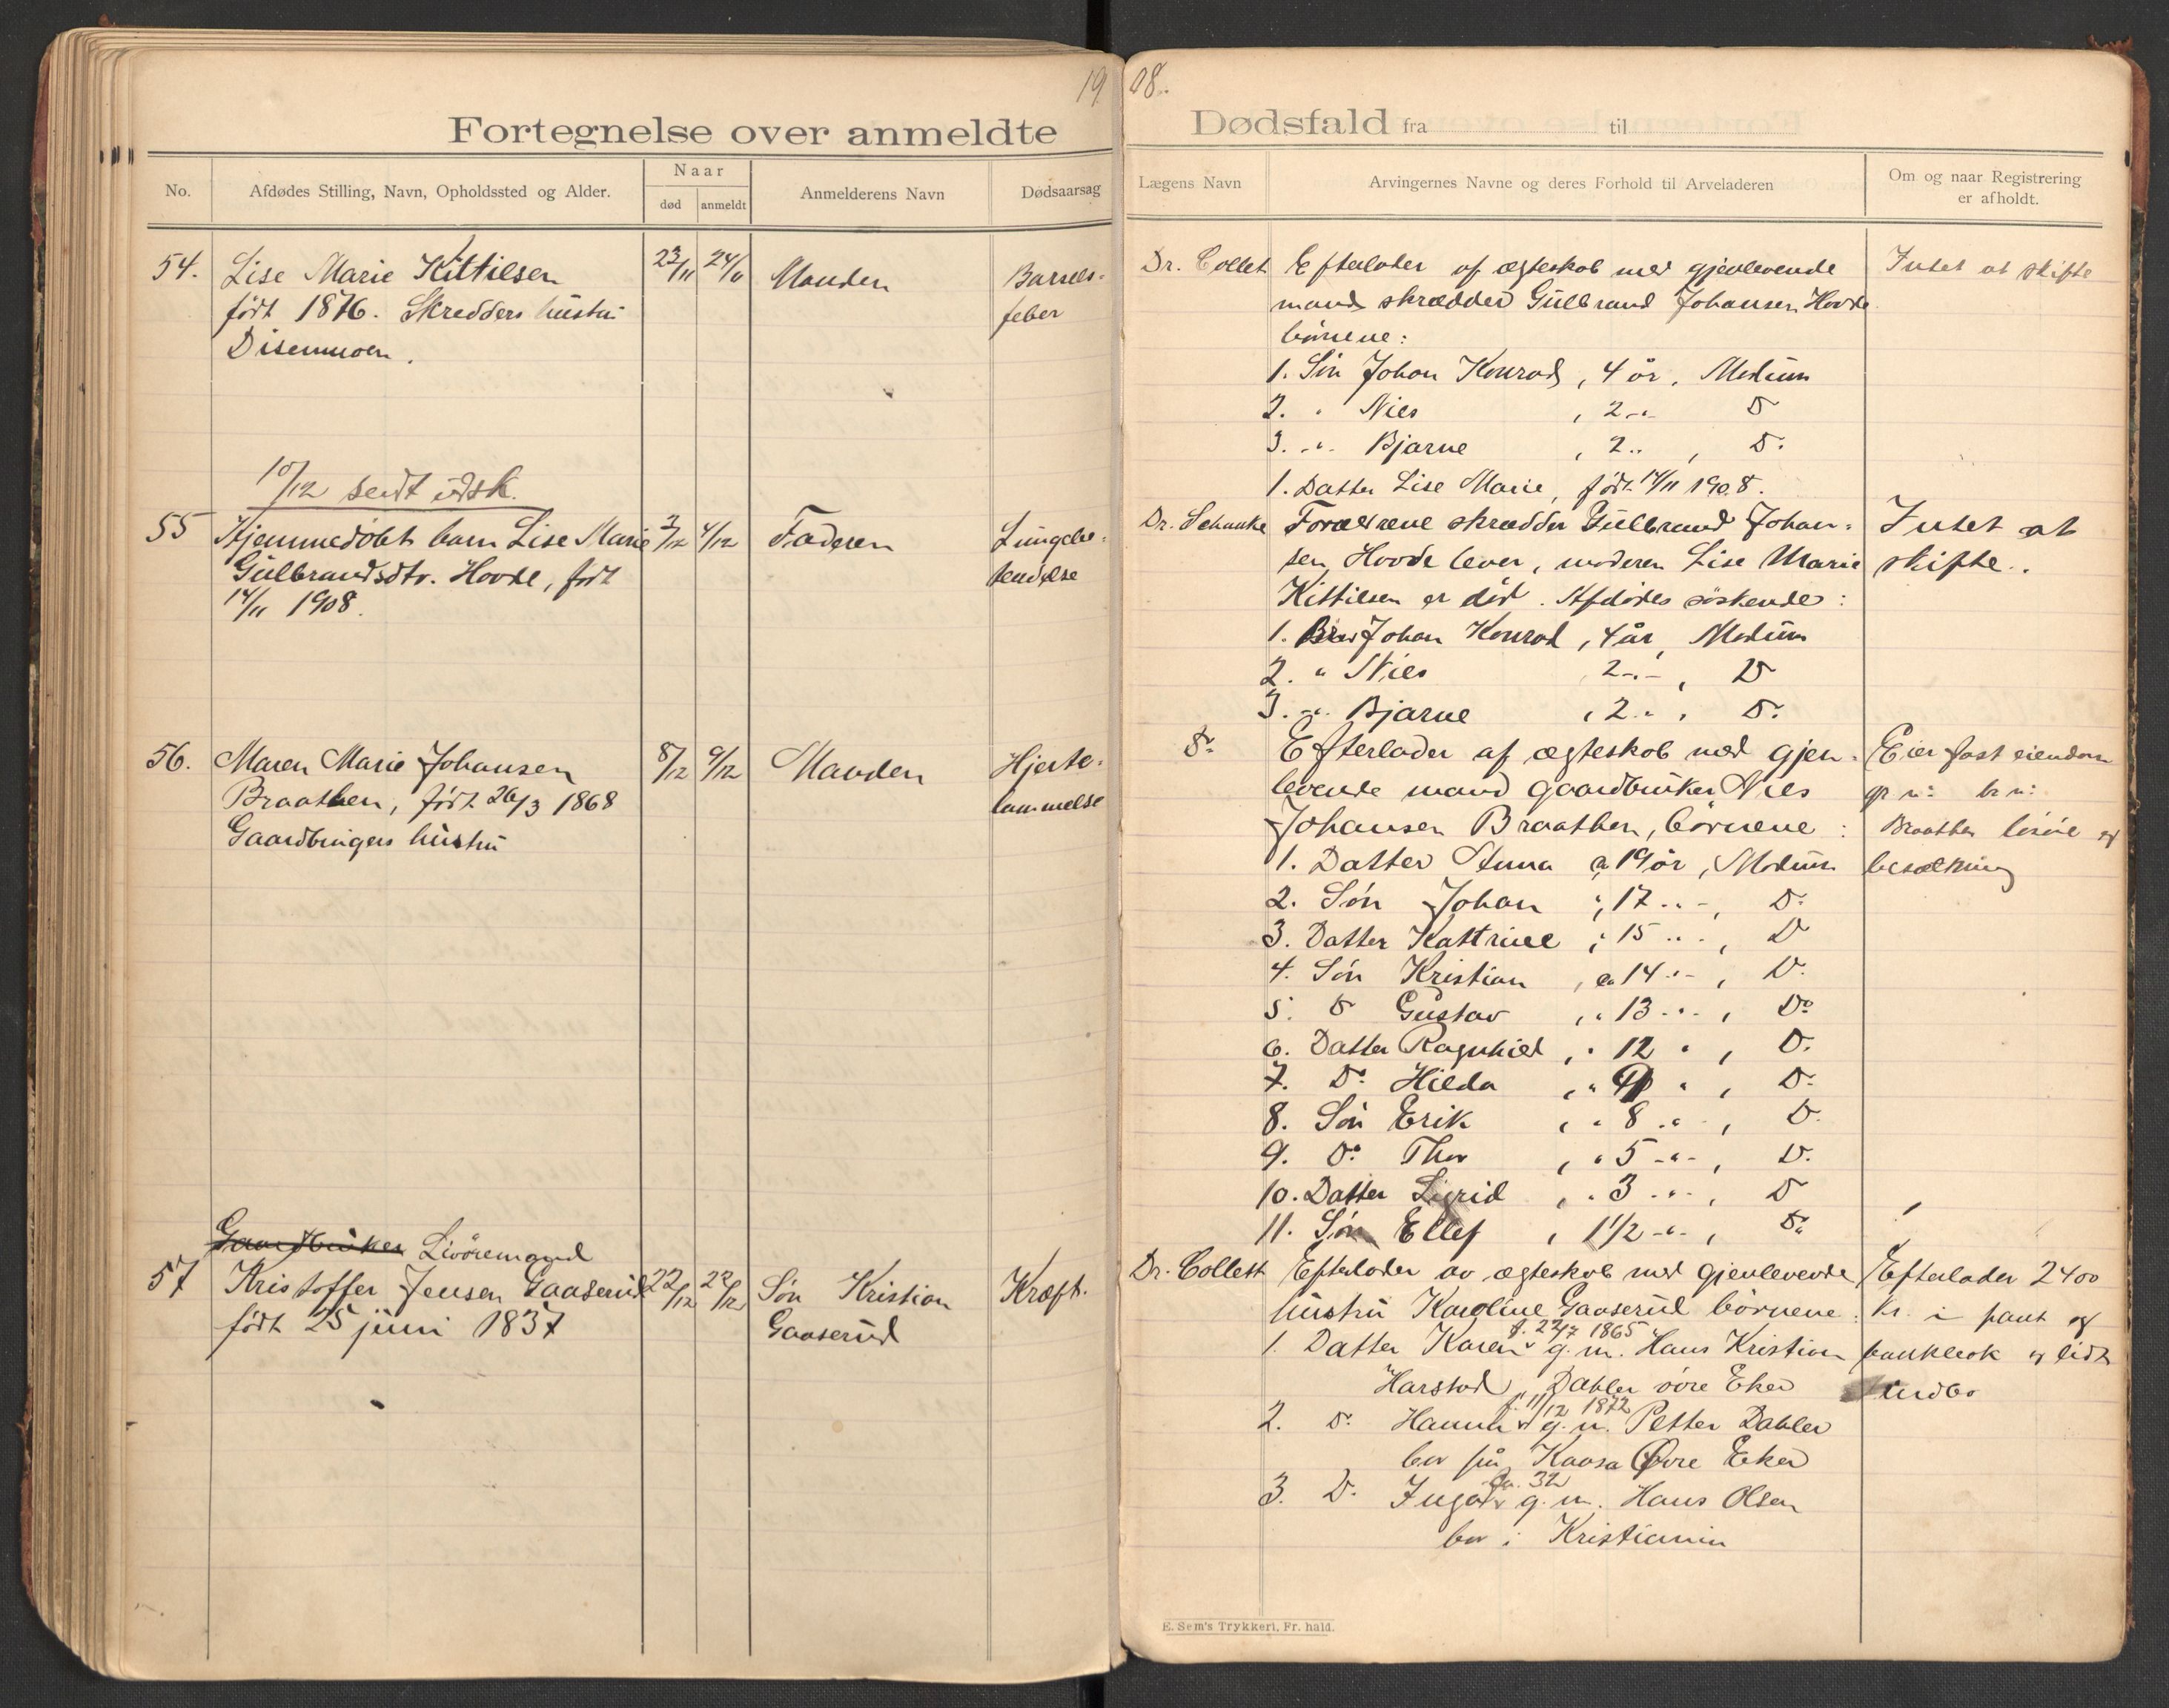 1908.
Fortegnelse over anmeldte
Dødsfald fra til
No.
Afdødes Stilling, Navn, Opholdssted og Alder.
Naar
død
anmeldt
Anmelderens Navn
Dødsaarsag
Lægens Navn
Arvingernes Navne og deres Forhold til Arveladeren
Om og naar Registrering
er afholdt.
54. Lise Marie Kittilsen
født 1876. Skredders hustru
Disenmoen.
23/11 24/11
Manden
Barsels-
feber
Dr. Collet
Efterlader af ægteskab med gjenlevende
mand skrædder Gulbrand Johansen Hovde
börnene:
1. Sön Johan Konrad, 4 år, Modum
2. " Nils , 2 -"- Do
3. -"- Bjarne , 2 " , Do
1. Datter Lise Marie, födt 14/11 1908.
Intet at skifte
10/12 sendt udsk.
55 Hjemmedöbt barn Lise Marie
Gulbrandsdtr. Hovde, födt
14/11 1908.
3/12 4/12
Faderen
Lungebe-
tendelse
Dr. Schanke
Forældrene skrædder Gulbrand Johan-
sen Hovde lever, moderen Lise Marie
Kittilsen er död. Afdödes söskende:
1. Bror Johan Konrad, 4 år, Modum
2. " Nils 2 -"- , Do
3. -"- Bjarne , 2 " , Do
Intet at
skifte.
56. Maren Marie Johansen
Braathen, födt 26/3 1868
Gaardbrugers hustru
8/12 9/12
Manden
Hjerte-
lammelse
Do
Efterlader af ægteskab med gjen-
levende mand gaardbruker Nils
Johansen Braathen, börnene:
1. Datter Anna a 19 år, Modum
2. Sön Johan , 17 " - , Do
3. Datter Kattrine , 15 " - , Do
4. Sön Kristian , a 14 -"- , Do
5. Do Gustav , " 13 -"- , Do
6. Datter Ragnhild , " 12 " , Do
7. Do Hilda , " " , Do
8. Sön Erik , " 8 -"- , Do
9. Do Thor , " 5 -"- , Do
10. Datter Sigrid , " 3 -"- , Do
11. Sön Ellef , 1 1/2 -"- , Do
Eier fast eiendom
gr n: br n:
Braathen lösöre og
besætning
Gaardbruker Livöremand
57 Kristoffer Jensen Gaaserud
födt 25 juni 1837
22/12 22/12
Sön Kristian
Gaaserud
Kræft.
Dr. Collett
Efterlader av ægteskab med gjenlevende
hustru Karoline Gaaserud börnene:
f. 22/7 1865
1. Datter Karen g. m. Hans Kristian
Harstad, Dahler övre Eker
f. 11/12 1872
2. Do Hanna g. m. Petter Dahler
bor på Kaasa Övre Eker
ca. 32
3. Do Inga g. m. Hans Olsen
bor i Kristiania
Efterlader 2400
kr. i pant og
bankbok og lidt
indbo
E. Sem's Trykkeri, Fr. hald.